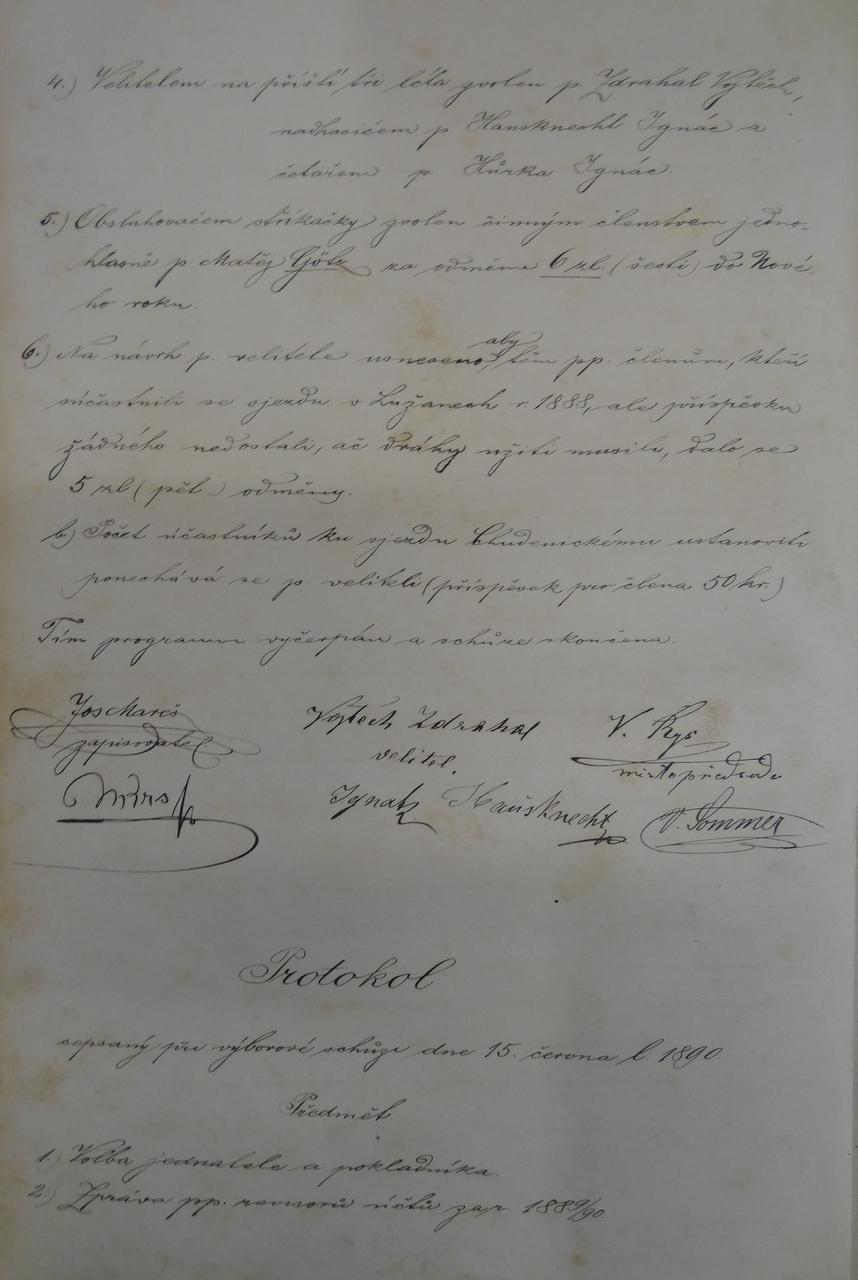 4.) Velitelem na příští tři léta zvolen p. Zdrahal Vojtěch,
nadhasičem p Hausknecht Ignác a
četařem p. Hůrka Ignác.
5.) Obsluhovačem stříkačky zvolen činným členstvem jedno-
hlasně p. Matěj Götz za odměnu 6 zl. (šesti) do Nové-
ho roku.
aby
6.) Na návrh p. velitele usneseno, těm pp. členům, kteří
súčastnili se sjezdu v Lužanech r. 1888, ale příspěvku
žádného nedostali, ač dráhy užiti musili, dalo se
5 zl (pět) odměny.
b) Počet účastníků ku sjezdu Chudenickému ustanoviti
ponechává se p. veliteli (příspěvek pro člena 50 kr.)
Tím programm vyčerpán a schůze skončena.
Jos Mareš Vojtěch Zdrahal V. Rys
zapisovatel velitel. místopředseda
Ignatz Hausknecht V. Sommer
Protokol
sepsaný při výborové schůzi dne 15. června l. 1890.
Předmět
1.) Volba jednatele a pokladníka.
2.) Zpráva pp. revisorů účtů za r. 1889/90.